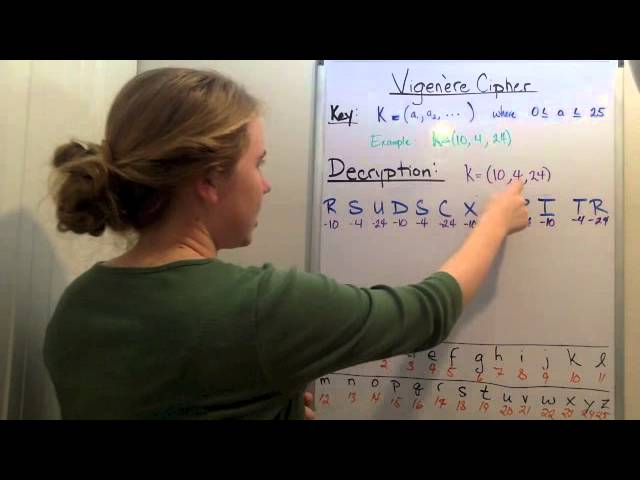 Vigenère Cipher
Key: K = (a₁, a₂, ...) where 0 ≤ a ≤ 25
Example: K=(10, 4, 24)
Decryption: K = (10, 4, 24)
R S U D S C X I T R
-10 -4 -24 -10 -4 -24 -10 -10 -4 -24
e f g h i j k l
2 3 4 5 6 7 8 9 10 11
m n o p q r s t u v w x y z
12 13 14 15 16 17 18 19 20 21 22 23 24 25